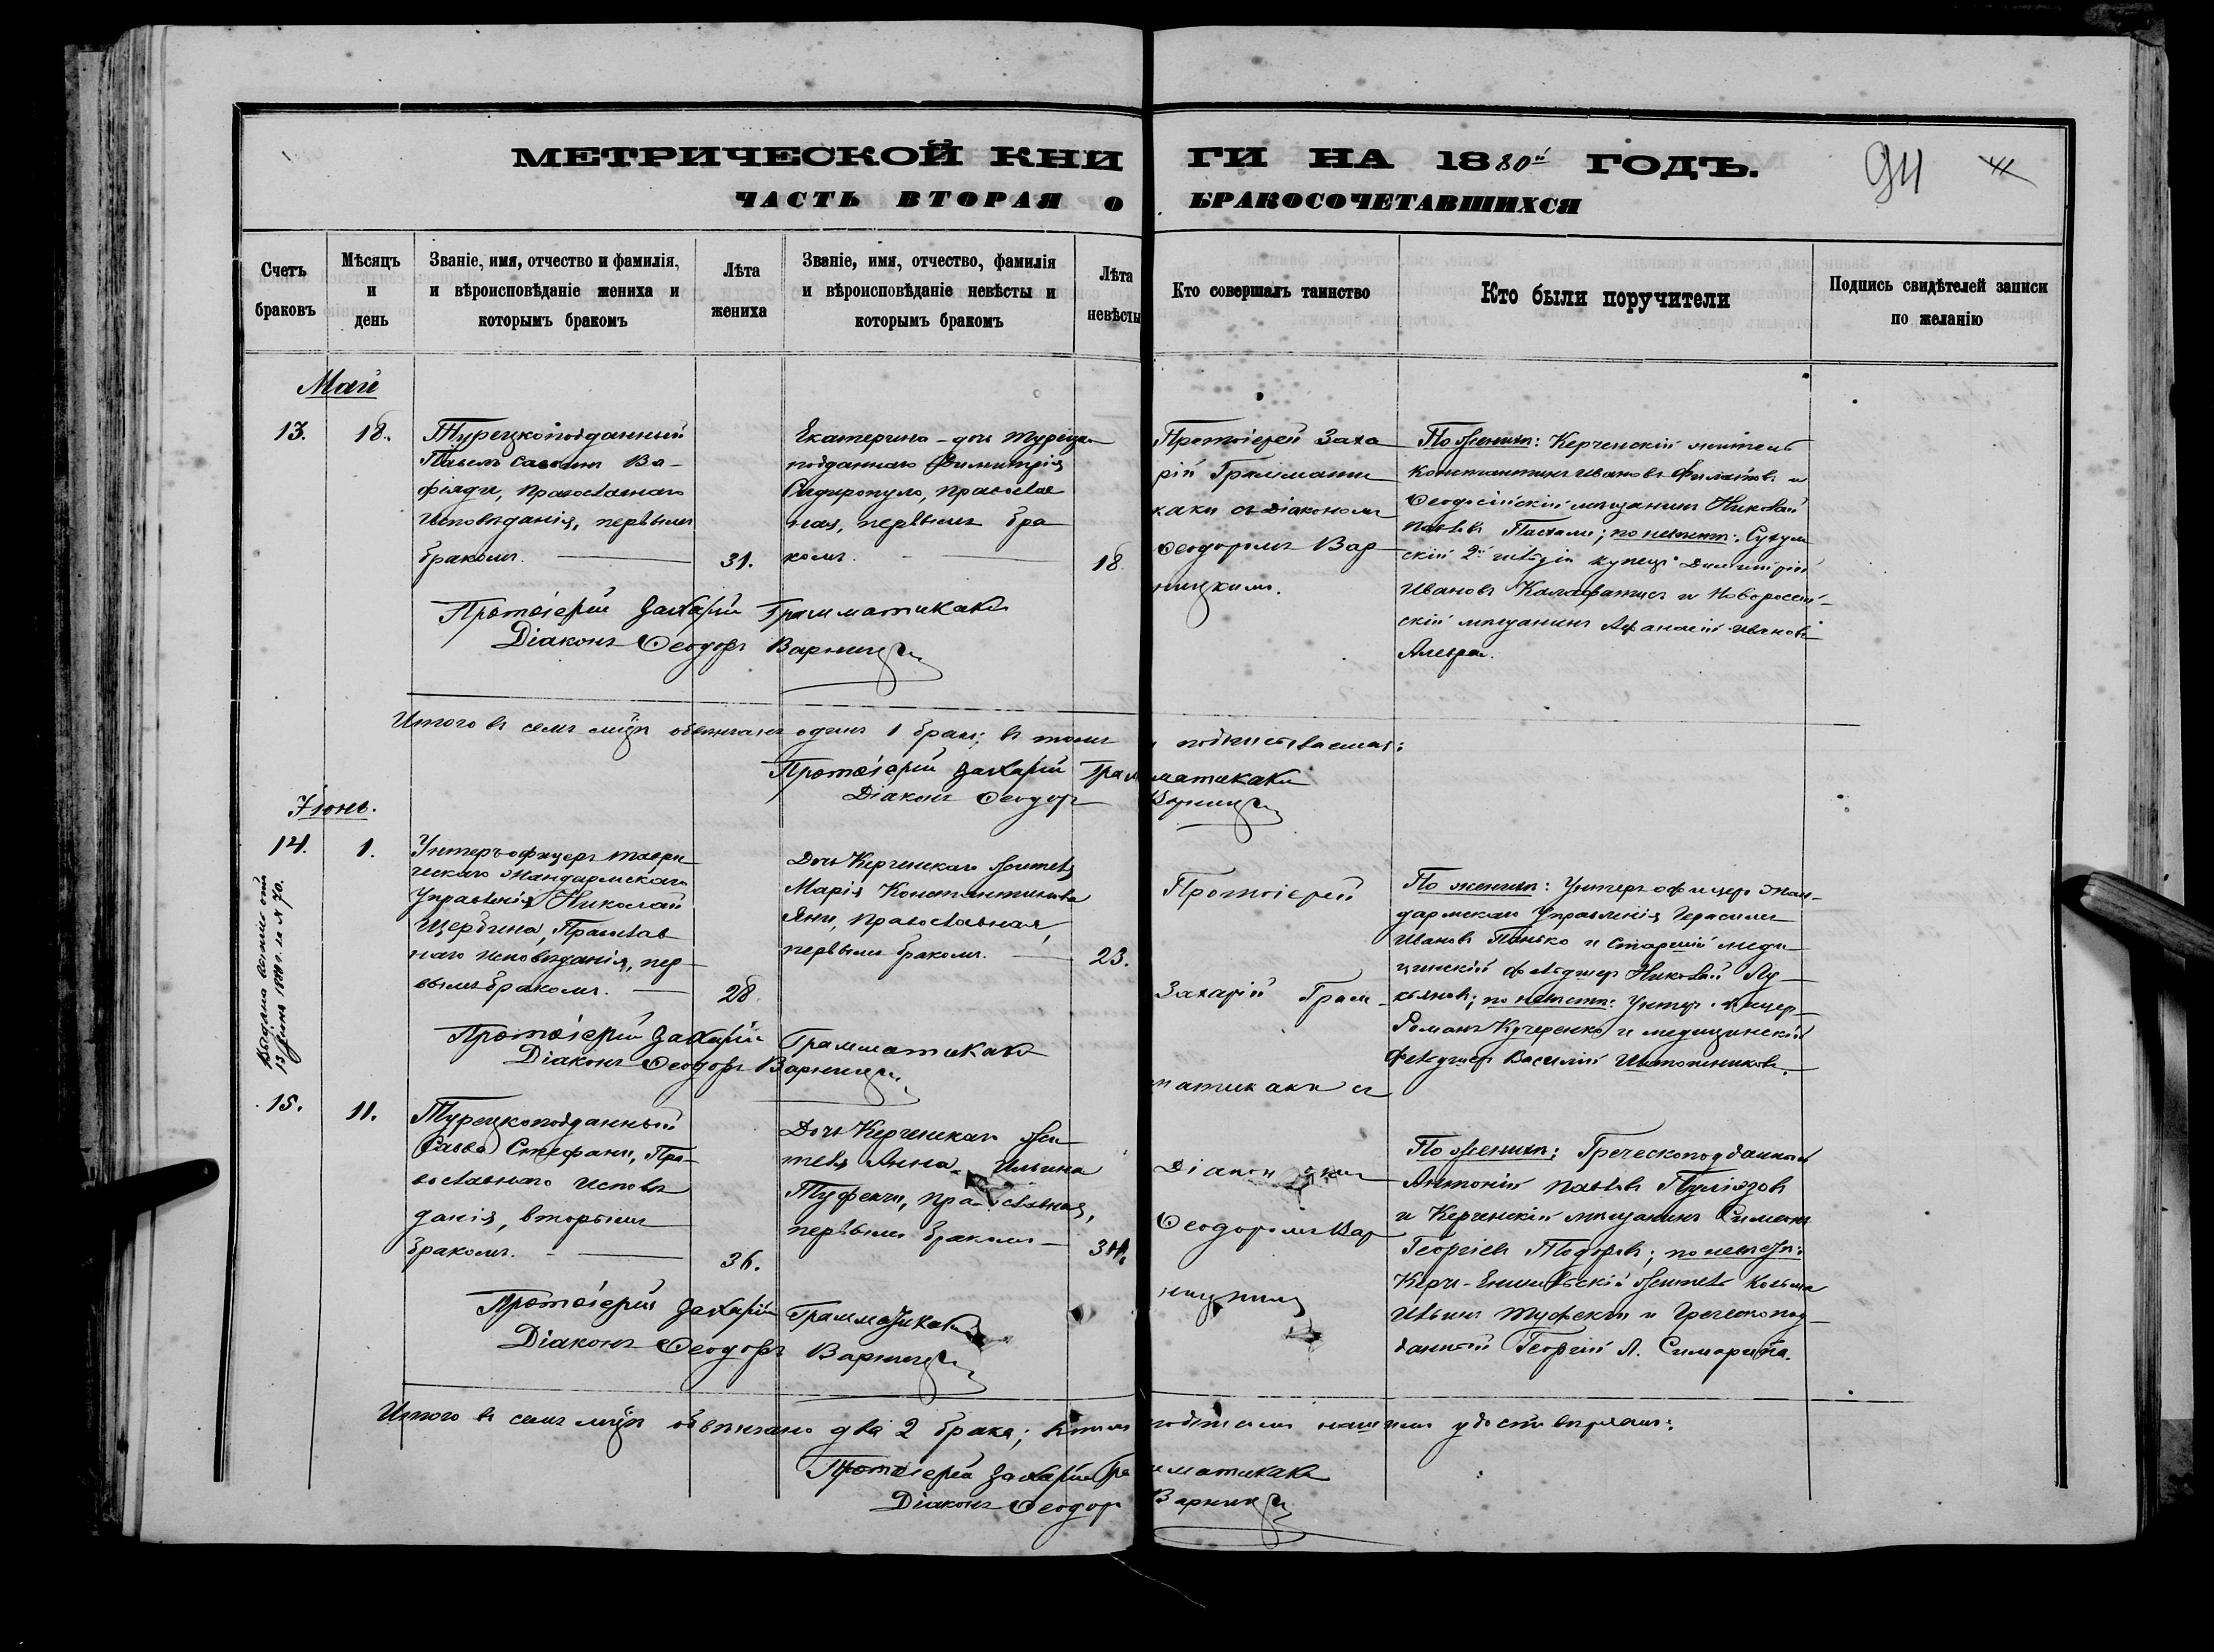 МЕТРИЧЕСКОЙ КНИГИ НА 1880й ГОДЪ.
94
ЧАСТЬ ВТОРАЯ О БРАКОСОЧЕТАВШИХСЯ
Счетъ браковъ
Мѣсяцъ и день
Званіе, имя, отчество и фамилія, и вѣроисповѣданіе жениха и которымъ бракомъ
Лѣта жениха
Званіе, имя, отчество, фамилія и вѣроисповѣданіе невѣсты и которымъ бракомъ
Лѣта невѣсты
Кто совершалъ таинство
Кто были поручители
Подпись свидѣтелей записи по желанію
Май
13.
18.
Турецкоподданный
Павелъ Саввинъ Ва-
фіяди, православнаго
исповѣданія, первымъ
бракомъ.
31.
Екатерина - дочь Турецко
подданнаго Димитрія
Сидиропуло, православ
ная, первымъ бра
комъ.
18.
Протоіерей Заха
рій Граммати
каки съ Діакономъ
Ѳеодоромъ Вар
ницкимъ.
По женихѣ: Керченскій житель
Константинъ Ивановъ и
Ѳеодосійскій мѣщанинъ Николай
по невѣстѣ: Сухум
скій 2й гильдіи купецъ Димитрій
Ивановъ Калафатисъ и Новороссій-
скій мѣщанинъ Афанасій Ивановъ
Протоіерей Захарій Грамматикаки
Діаконъ Ѳеодоръ Варницкій
Итого въ семъ мцѣ обвѣнчанъ одинъ 1 бракъ; въ томъ и подписываемся:
Протоіерей Захарій Грамматикаки
Діаконъ Ѳеодоръ Варницкій
Іюнь.
14.
1.
Унтеръ офицеръ Таври
ческаго Жандармскаго
Управленія Николай
Щербина, Православ
наго исповѣданія, пер-
вымъ бракомъ.
28
Дочь Керченскаго жителя
Марія Константинова
Яни, православная,
первымъ бракомъ.
23.
Протоіерей
Захарій Грам
матикаки съ
Діакономъ
Ѳеодоромъ Вар
ницкимъ
По женихѣ: Унтеръ офицеръ Жан-
дармскаго Управленія Герасимъ
Ивановъ Панько и старшій меди-
цинскій фельдшеръ Николай Лу-
кьяновъ; по невѣстѣ: Унтеръ офицеръ
Романъ Кучеренко и медицинскій
фельдшеръ Василій
Протоіерей Захарій Грамматикаки
Діаконъ Ѳеодоръ Варницкій
Выдана копія отъ
13 Іюня 1880 г. за № 70.
15.
11.
Турецкоподданный
Савва Стефани, Пра-
вославнаго исповѣ
данія, вторымъ
бракомъ.
36.
Дочь Керченскаго жи
теля Анна Ильина
Туфекчи, православная,
первымъ бракомъ
34.
По женихѣ: Греческоподданный
Антоній Павловъ
и Керченскій мѣщанинъ Симеонъ
Георгіевъ Тодоровъ; по невѣстѣ:
Керчь-Еникольскій житель Козьма
Ильинъ Туфекчи и Греческопод-
данный Георгій А.
Протоіерей Захарій Грамматикаки
Діаконъ Ѳеодоръ Варницкій
Итого въ семъ мцѣ обвѣнчано два 2 брака; въ томъ подписомъ нашимъ удостовѣряемъ:
Протоіерей Захарій Грамматикаки
Діаконъ Ѳеодоръ Варницкій